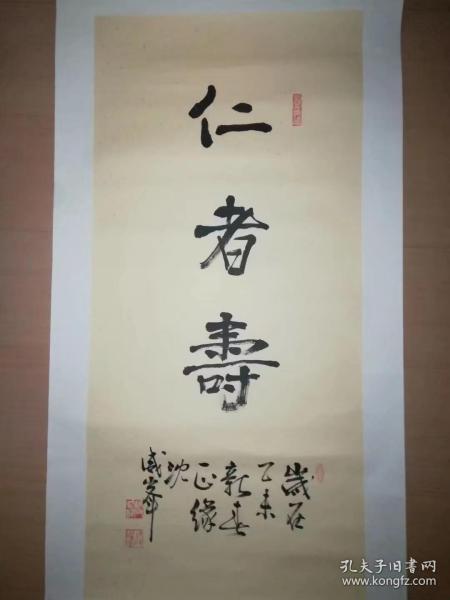 仁者壽
歲在
乙未
新春
正緣
沈
盛峯
孔夫子旧书网
www.kongfz.com